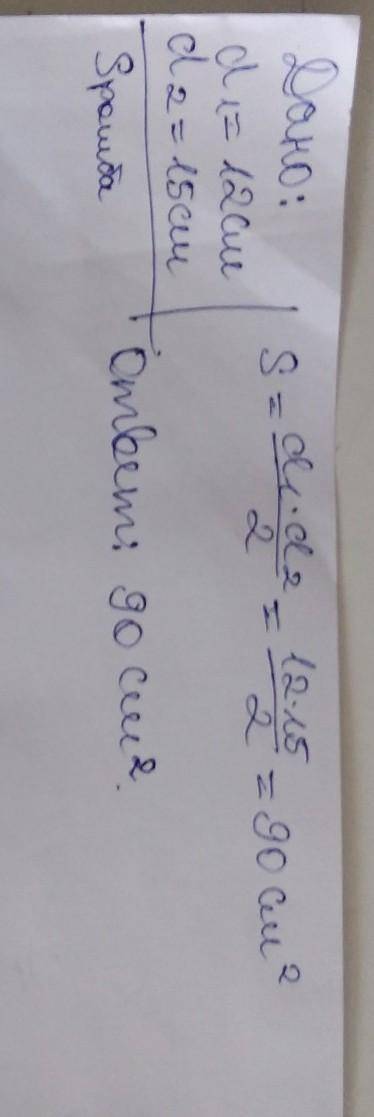 Дано:
d1 = 12 см
d2 = 15 см
Sромба
S = d1·d2/2 = 12·15/2 = 90 см²
Ответ: 90 см².